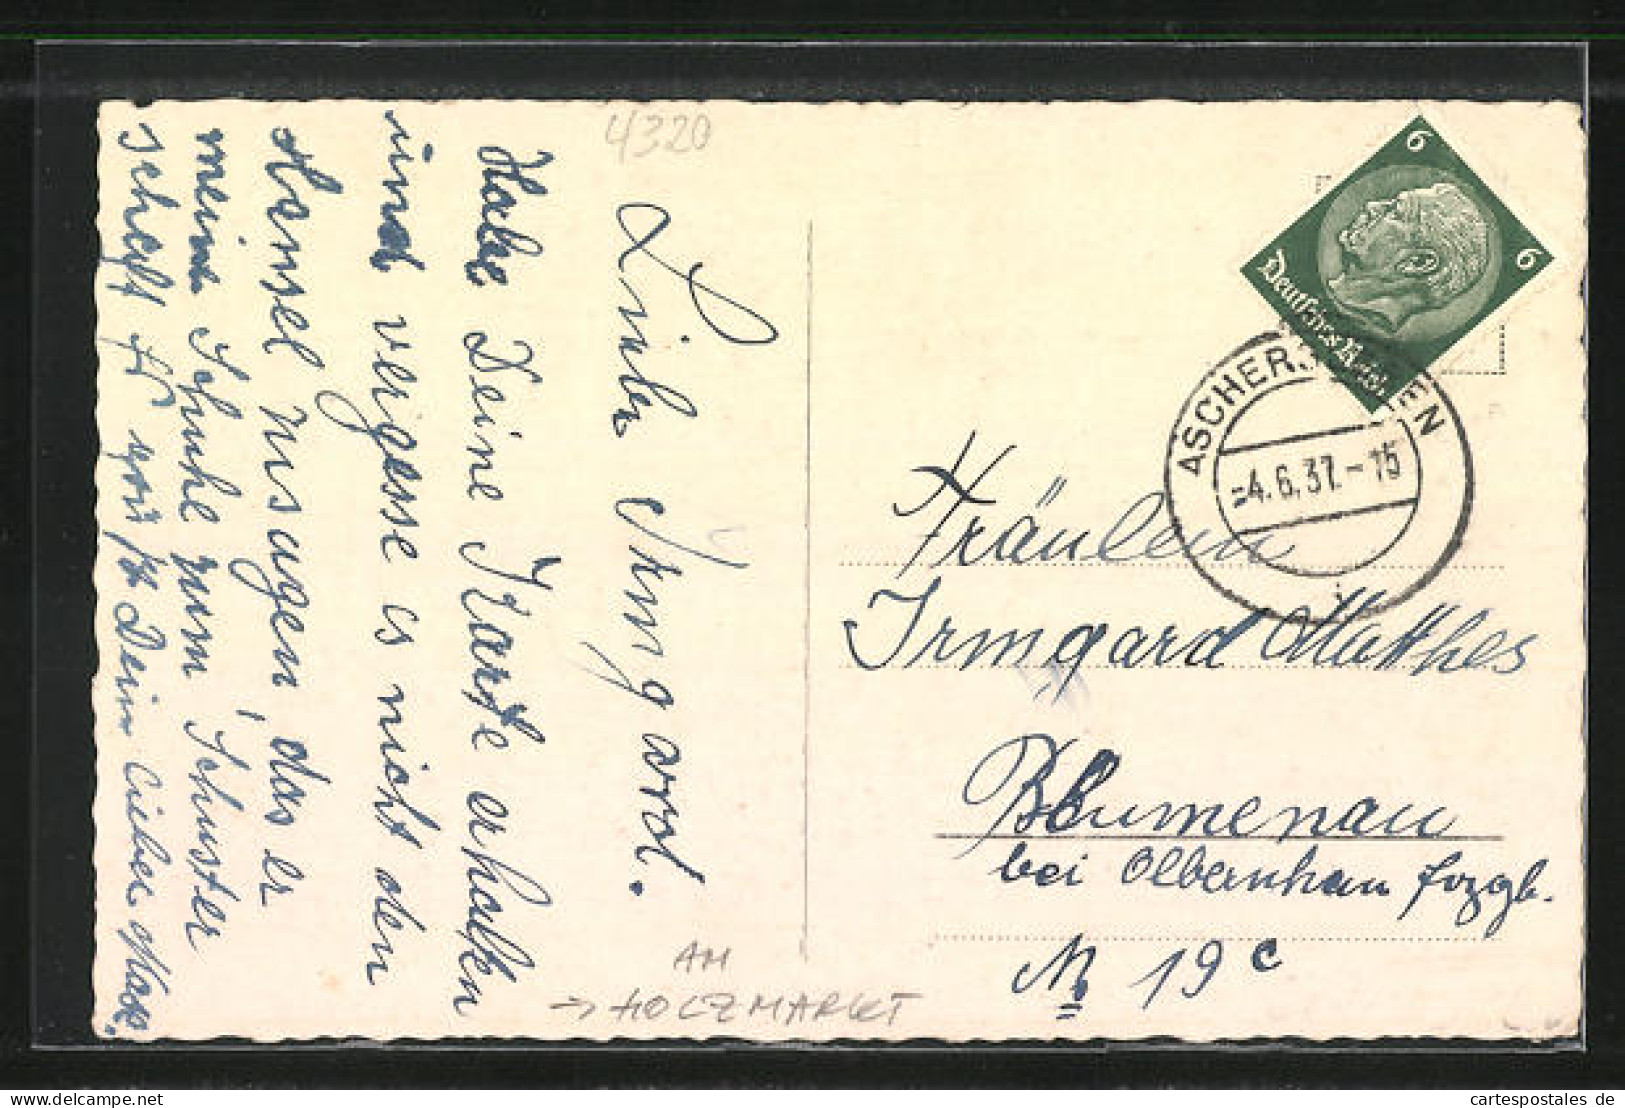 4320
Liebe Irmgard.
Habe Deine Karte erhalten
und vergesse es nicht den
Hansel zu sagen das er
meine Schuhe zum Schuster
schafft Dein lieber
6
6
Deutsches Reich
ASCHERSLEBEN
-4.6.37.-15
i
Fräulein
Irmgard Matthes
Blumenau
bei Olbernhau Erzgb.
N 19 c
AM
→ HOLZMARKT
cartespostales de